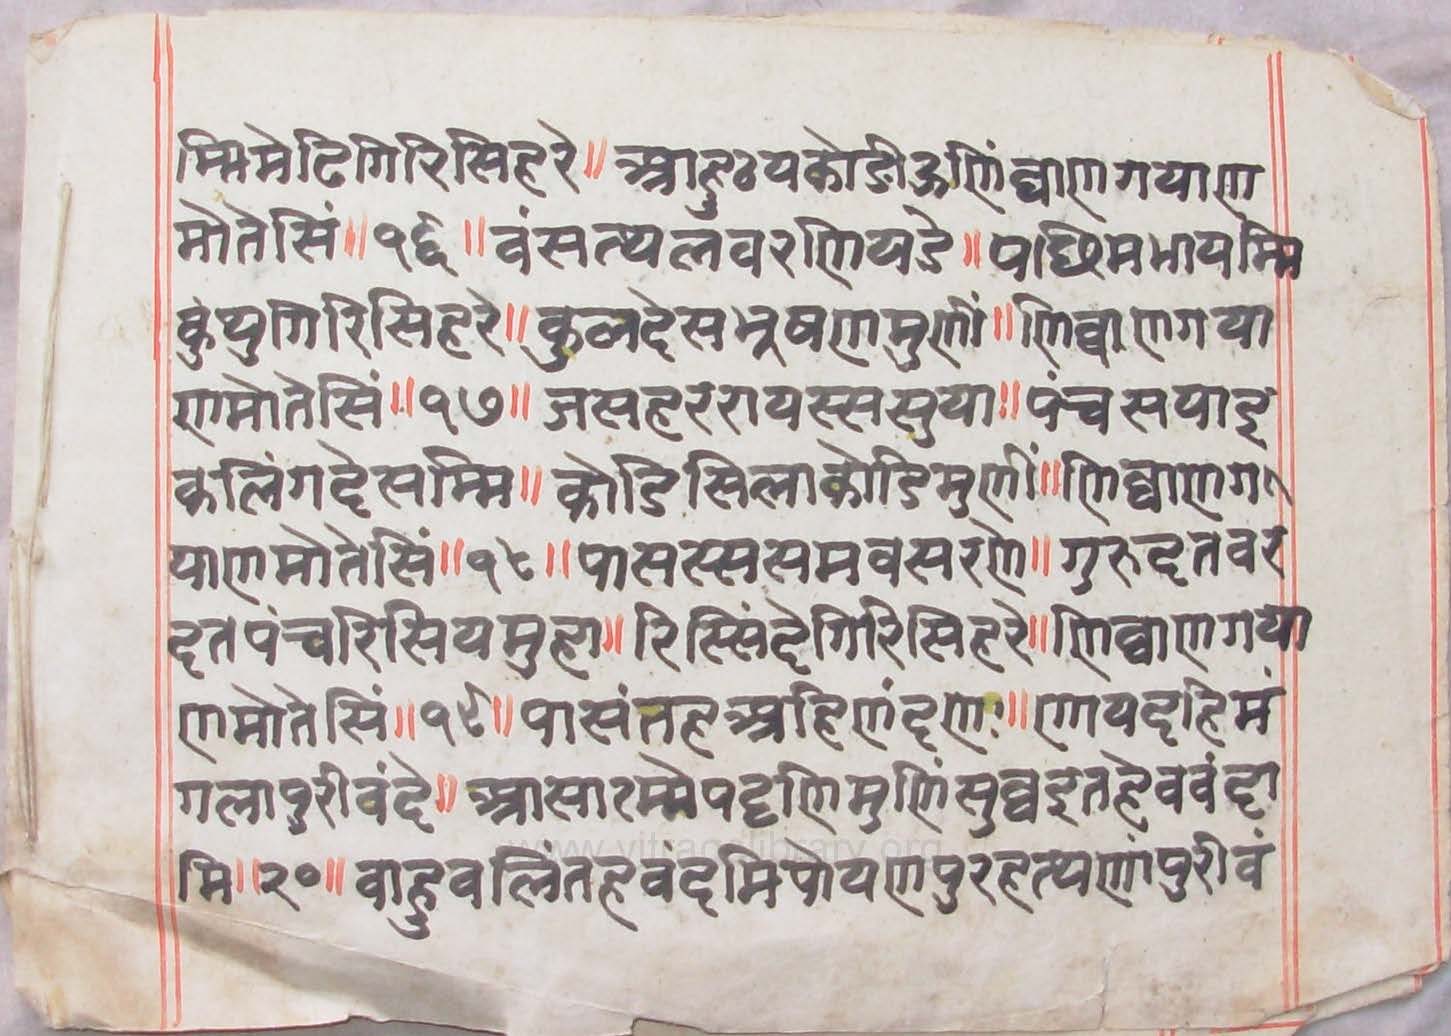 म्मिमेटिगिरिसिहरे॥ आहुठयकोडीऊणिंव्वाणगयाण
मोतेसिं॥१६॥ वंसत्थलवरणियडे॥पछिमभायम्मि
कुंथुगिरिसिहरे॥कुलदेसभूषणमुणी॥णिव्वाणगया
णमोतेसिं॥१७॥ जसहररायस्ससुया॥पंचसयाइ
कलिंगदेसम्मि॥ कोडिसिलाकोडिमुणी॥णिव्वाणग
याणमोतेसिं॥१८॥पासस्ससमवसरणे॥गुरुदत्तवर
दत्तपंचरिसियमुहा॥रिस्सिंदेगिरिसिहरे॥णिव्वाणगया
णमोतेसिं॥१९॥पासंतहअहिणंदण॥णायदहिमं
गलापुरीवंदे॥ आसारम्मेपट्टणिमुणिसुव्वइतहेववंदा
मि॥२०॥वाहुवलितहवंदमिपोयणपुरहत्थिणापुरीवं
www.vitragelibrary.org